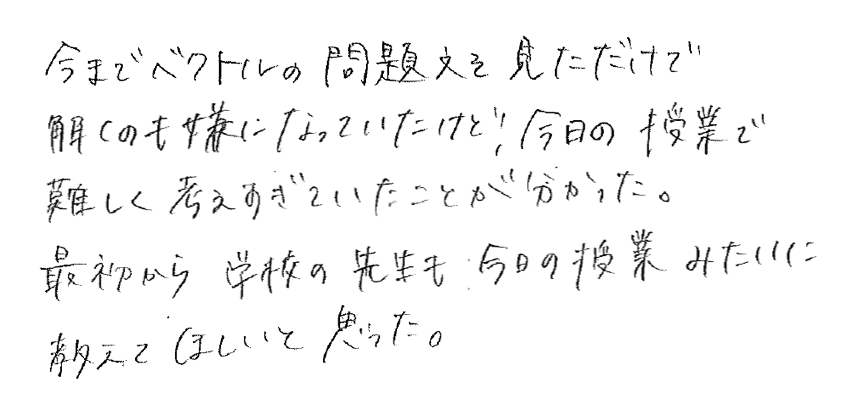 今までベクトルの問題文を見ただけで
解くのも嫌になっていたけど、今日の授業で
難しく考えすぎていたことが分かった。
最初から学校の先生も今日の授業みたいに
教えてほしいと思った。